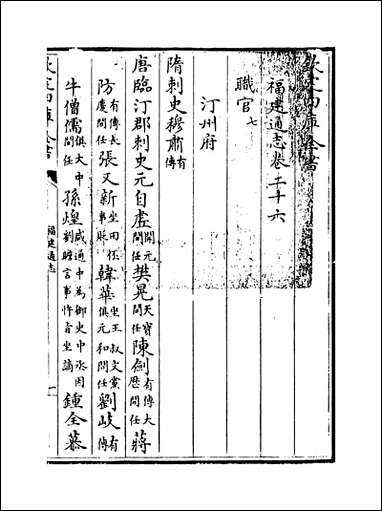 欽定四庫全書
福建通志卷二十六
職官七
汀州府
隋刺史穆肅有傳
唐臨汀郡刺史元自虛開元間任樊晃天寶間任陳劍有傳大歷間任蔣
防有傳長慶間任張又新坐田伾事貶韓華坐王叔文黨俱元和間任劉岐有傳
牛僧孺俱大中間任孫煌咸通中為御史中丞因劉瞻言事忤旨坐謫鍾全慕
欽定四庫全書
福建通志
一